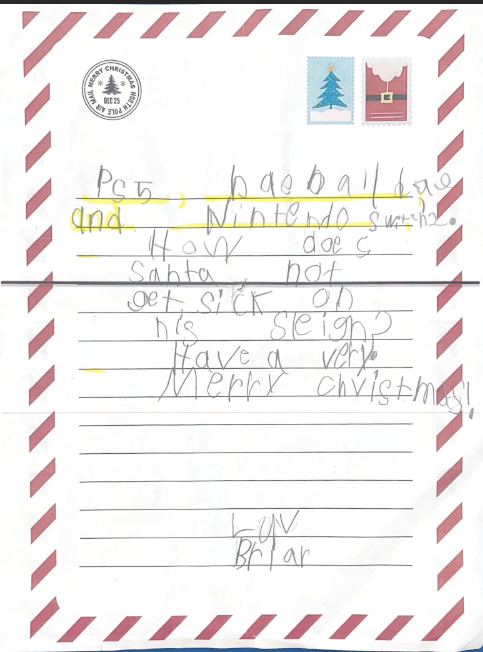 MERRY CHRISTMAS NORTH POLE AIR MAIL
DEC 25
PS5, baeball
and Nintendo switch2.
How does
Santa not
get sick on
his sleigh?
Have a very
Merry christmas!
Luv
Briar